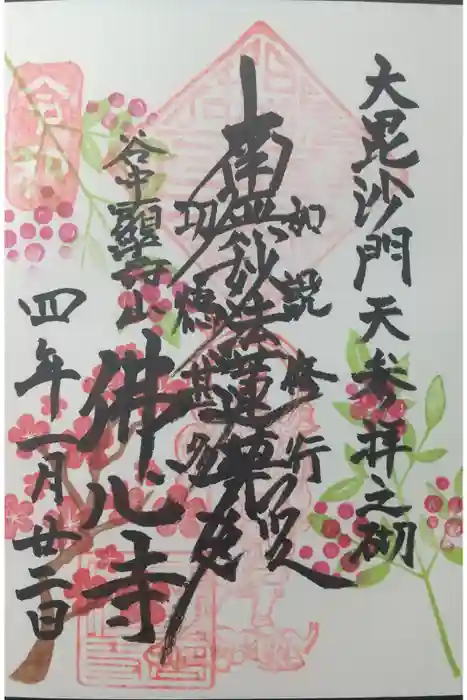 大毘沙門天参拝之砌
如説修行
南無妙法蓮華経
功徳甚多
谷中顯壽山
佛心寺
令和
四年一月廿二日